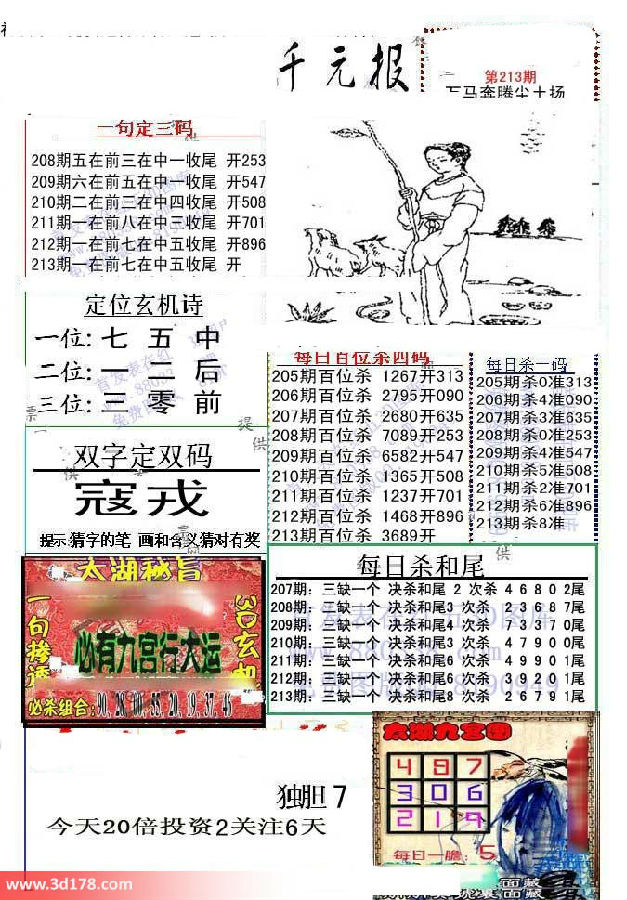 千元报
第213期
万马奔腾尘土扬
一句定三码
208期五在前三在中一收尾 开253
209期六在前五在中一收尾 开547
210期二在前三在中四收尾 开508
211期一在前八在中三收尾 开701
212期一在前七在中五收尾 开896
213期一在前七在中五收尾 开
定位玄机诗
一位: 七 五 中
二位: 一 二 后
三位: 三 零 前
双字定双码
寇戎
提示:猜字的笔 画和含义猜对有奖
每日百位杀四码
205期百位杀 1267开313
206期百位杀 2795开090
207期百位杀 2680开635
208期百位杀 7089开253
209期百位杀 6582开547
210期百位杀 1365开508
211期百位杀 1237开701
212期百位杀 1468开896
213期百位杀 3689开
每日杀一码
205期杀0准313
206期杀4准090
207期杀3准635
208期杀0准253
209期杀4准547
210期杀5准508
211期杀2准701
212期杀6准896
213期杀8准
提
供
每日杀和尾
207期: 三缺一个 决杀和尾 2 次杀 4 6 8 0 2尾
208期: 三缺一个 决杀和尾3 次杀 2 3 6 8 7尾
209期: 三缺一个 决杀和尾4 次杀 7 3 3 7 0尾
210期: 三缺一个 决杀和尾3 次杀 4 7 9 0 0尾
211期: 三缺一个 决杀和尾6 次杀 4 9 9 0 1尾
212期: 三缺一个 决杀和尾6 次杀 3 9 2 0 1尾
213期: 三缺一个 决杀和尾8 次杀 2 6 7 9 1尾
太湖秘旨
3D玄机
必有九宫行大运
必杀组合:90, 28, 00, 55, 20, 19, 37, 46
独胆 7
今天20倍投资2关注6天
太湖九宫图
4 8 7
3 0 6
2 1 9
每日一胆: 5
www.3d178.com